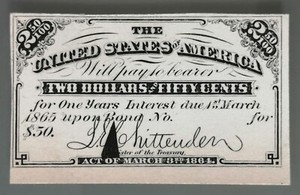 2 50/100 THE 2 50/100
UNITED STATES OF AMERICA
Will pay to bearer
TWO DOLLARS AND FIFTY CENTS
for One Years Interest due 1st March
1865 upon Bond No. for
$50.
L E Chittenden
Register of the Treasury.
ACT OF MARCH 3RD 1864.